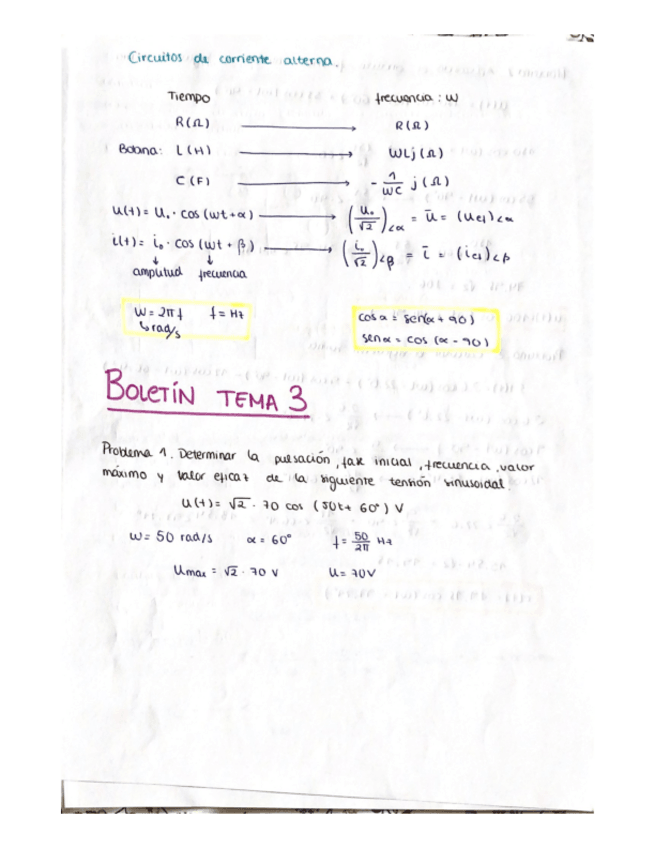 Circuitos de corriente alterna.
Tiempo frecuencia: ω
R(Ω) ⟶ R(Ω)
Bobina: L(H) ⟶ ωLj (Ω)
C(F) ⟶ - 1/ωC j (Ω)
u(t) = U₀ · cos (ωt + α) ⟶ (U₀/√2)∠α = ū = (Uef)∠α
i(t) = i₀ · cos (ωt + β) ⟶ (i₀/√2)∠β = ī = (ief)∠β
↓ ↓
amplitud frecuencia
ω = 2πf f = Hz
↳ rad/s
cos α = sen(α + 90)
sen α = cos (α - 90)
BOLETÍN TEMA 3
Problema 1. Determinar la pulsación, fase inicial, frecuencia, valor
máximo y valor eficaz de la siguiente tensión sinusoidal.
u(t) = √2 · 70 cos (50t + 60°) V
ω = 50 rad/s α = 60° f = 50/2π Hz
Umax = √2 · 70 V U = 70V